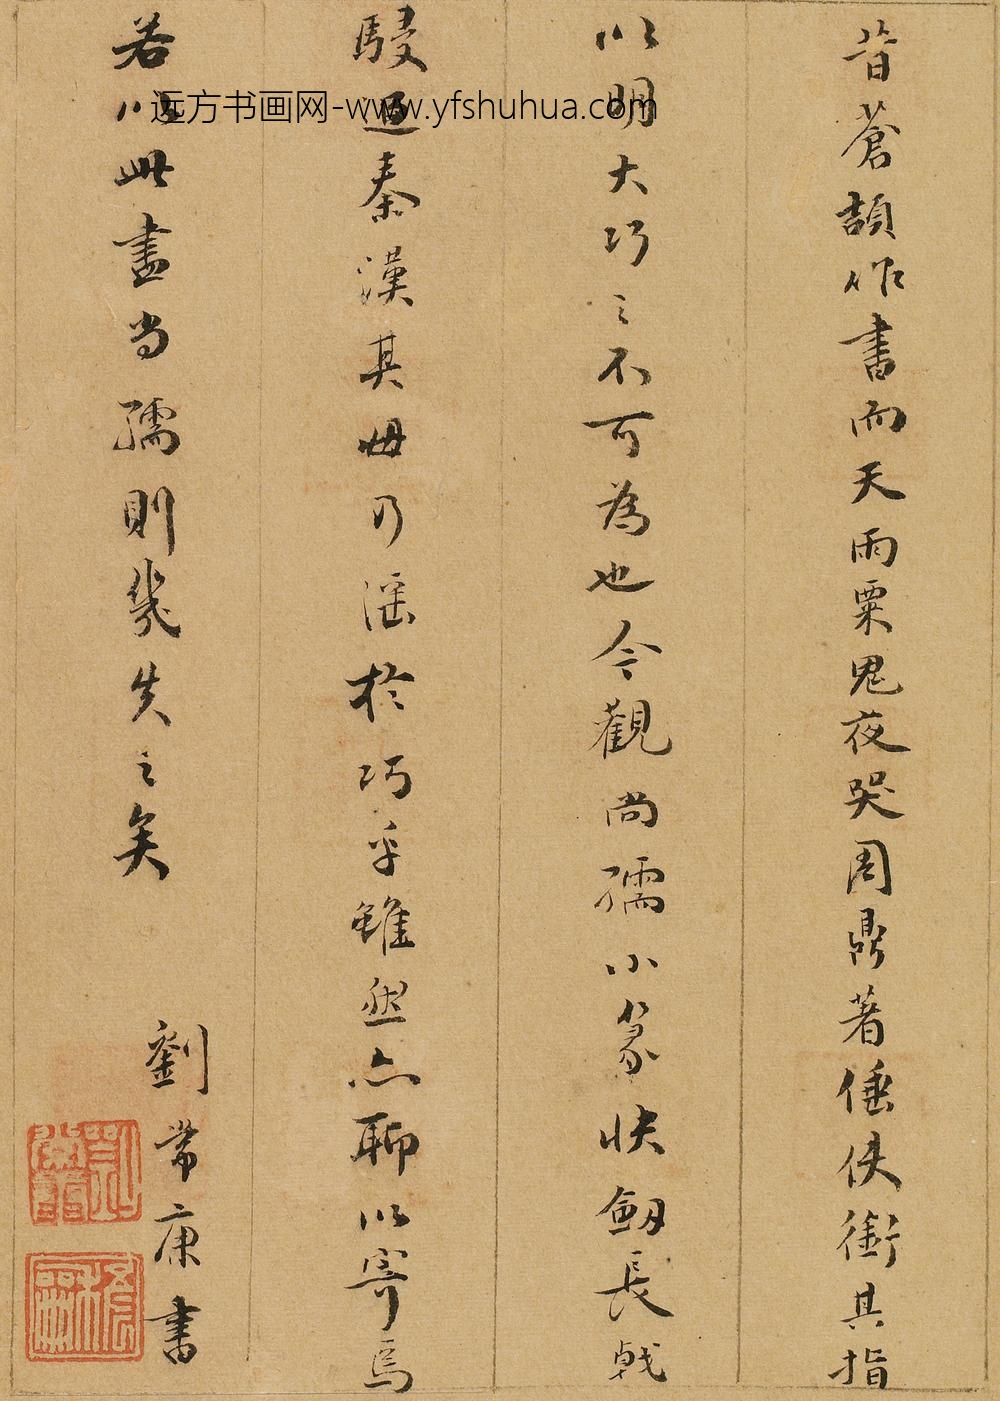 昔蒼頡作書而天雨粟鬼夜哭周鼎著倕使銜其指
以明大巧之不可為也今觀尚孺小篆快劔長戟
駸逼秦漢其毋乃滛於巧乎雖然亦聊以寄焉
若以此盡尚孺則幾失之矣
劉常康書
远方书画网-www.yfshuhua.com